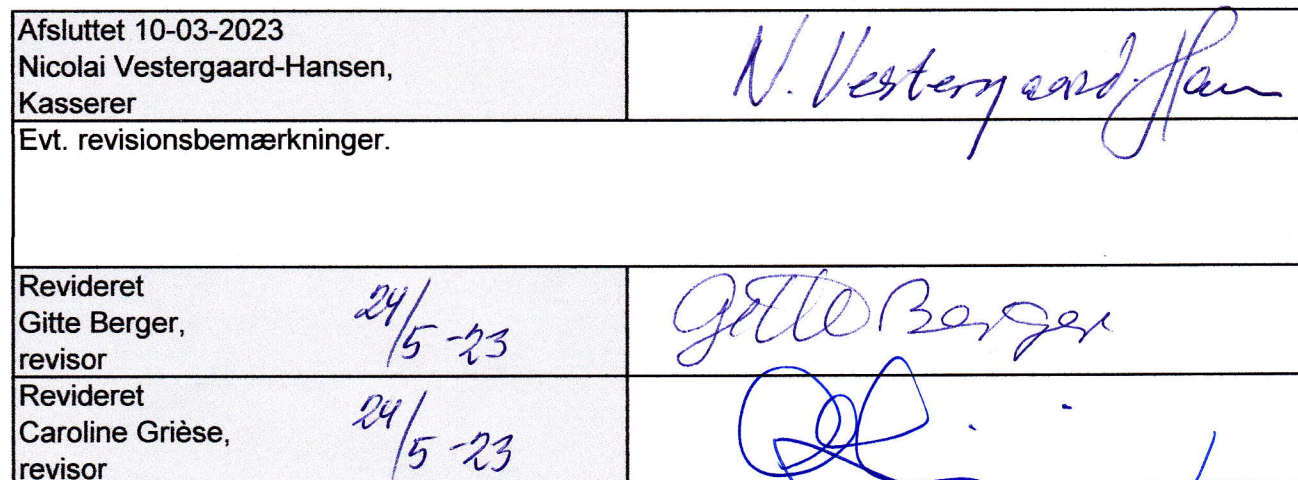 Afsluttet 10-03-2023
Nicolai Vestergaard-Hansen,
Kasserer
N. Vestergaard-Han
Evt. revisionsbemærkninger.
Revideret
Gitte Berger,
revisor
24/5-23
Gitte Berger
Revideret
Caroline Grièse,
revisor
24/5-23